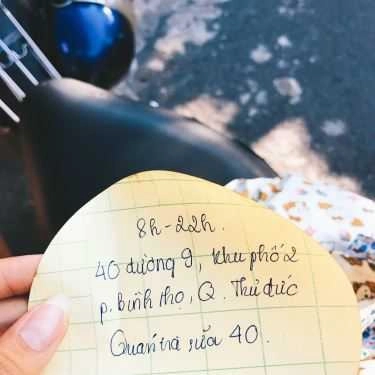 8h-22h.
40 đường 9, khu phố 2
p. Bình Thọ, Q. Thủ Đức
Quán trà sữa 40.